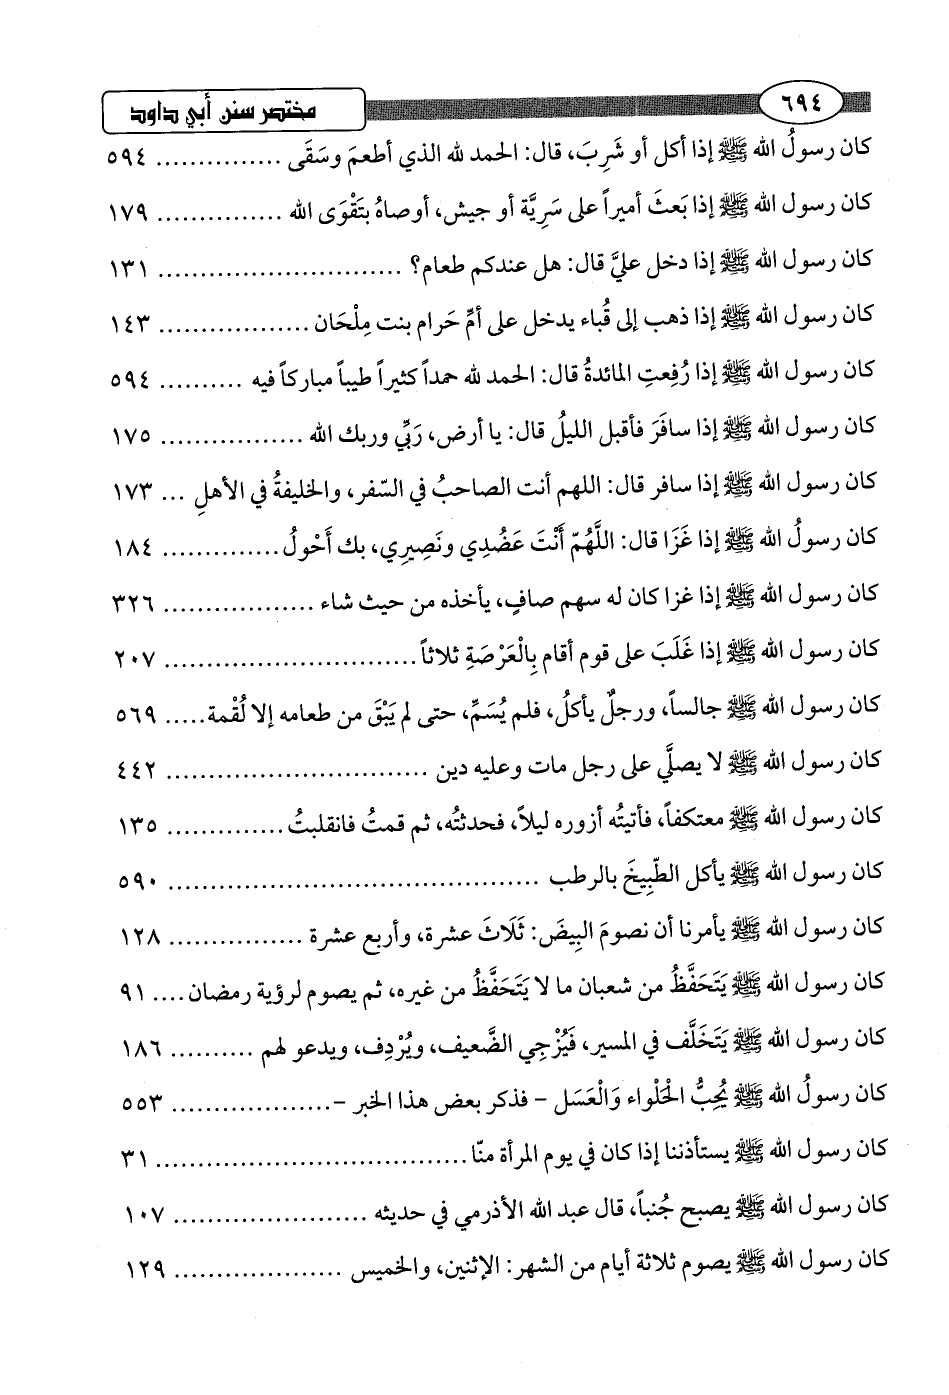 ٦٩٤
مختصر سنن أبي داود
كان رسولُ الله ﷺ إذا أكل أو شَرِبَ، قال: الحمد لله الذي أطعمَ وسَقَى ............... ٥٩٤
كان رسول الله ﷺ إذا بَعثَ أميراً على سَرِيَّة أو جيش، أوصاهُ بتَقْوَى الله ............... ١٧٩
كان رسول الله ﷺ إذا دخل عليَّ قال: هل عندكم طعام؟ ............................ ١٣١
كان رسول الله ﷺ إذا ذهب إلى قُباء يدخل على أمِّ حَرام بنت مِلْحَان .................. ١٤٣
كان رسول الله ﷺ إذا رُفِعتِ المائدةُ قال: الحمد لله حمداً كثيراً طيباً مباركاً فيه .......... ٥٩٤
كان رسول الله ﷺ إذا سافَرَ فأقبل الليلُ قال: يا أرض، رَبِّي وربك الله ................. ١٧٥
كان رسول الله ﷺ إذا سافر قال: اللهم أنت الصاحبُ في السّفر، والخليفةُ في الأهلِ ... ١٧٣
كان رسولُ الله ﷺ إذا غَزَا قال: اللَّهُمّ أَنْتَ عَضُدِي ونَصِيرِي، بك أَحْولُ.............. ١٨٤
كان رسول الله ﷺ إذا غزا كان له سهم صافٍ، يأخذه من حيث شاء .................. ٣٢٦
كان رسول الله ﷺ إذا غَلَبَ على قوم أقام بِالْعَرْصَةِ ثلاثاً............................. ٢٠٧
كان رسول الله ﷺ جالساً، ورجلٌ يأكلُ، فلم يُسَمِّ، حتى لم يَبْقَ من طعامه إلا لُقْمة..... ٥٦٩
كان رسول الله ﷺ لا يصلَّي على رجل مات وعليه دين .............................. ٤٤٢
كان رسول الله ﷺ معتكفاً، فأتيتُه أزوره ليلاً، فحدثتُه، ثم قمتُ فانقلبتُ.............. ١٣٥
كان رسول الله ﷺ يأكل الطِّبِيخَ بالرطب .......................................... ٥٩٠
كان رسول الله ﷺ يأمرنا أن نصومَ البِيضَ: ثَلَاثَ عشرة، وأربع عشرة ................ ١٢٨
كان رسول الله ﷺ يَتَحَفَّظُ من شعبان ما لا يَتَحَفَّظُ من غيره، ثم يصوم لرؤية رمضان.... ٩١
كان رسول الله ﷺ يَتَخَلَّف في المسير، فَيُزْجِي الضَّعيف، ويُرْدِف، ويدعو لهم .......... ١٨٦
كان رسولُ الله ﷺ يُحِبُّ الحَلْواء وَالْعَسَل – فذكر بعض هذا الخبر –.................. ٥٥٣
كان رسول الله ﷺ يستأذننا إذا كان في يوم المرأة منّا.................................... ٣١
كان رسول الله ﷺ يصبح جُنباً، قال عبد الله الأذرمي في حديثه ...................... ١٠٧
كان رسول الله ﷺ يصوم ثلاثة أيام من الشهر: الإثنين، والخميس ................... ١٢٩